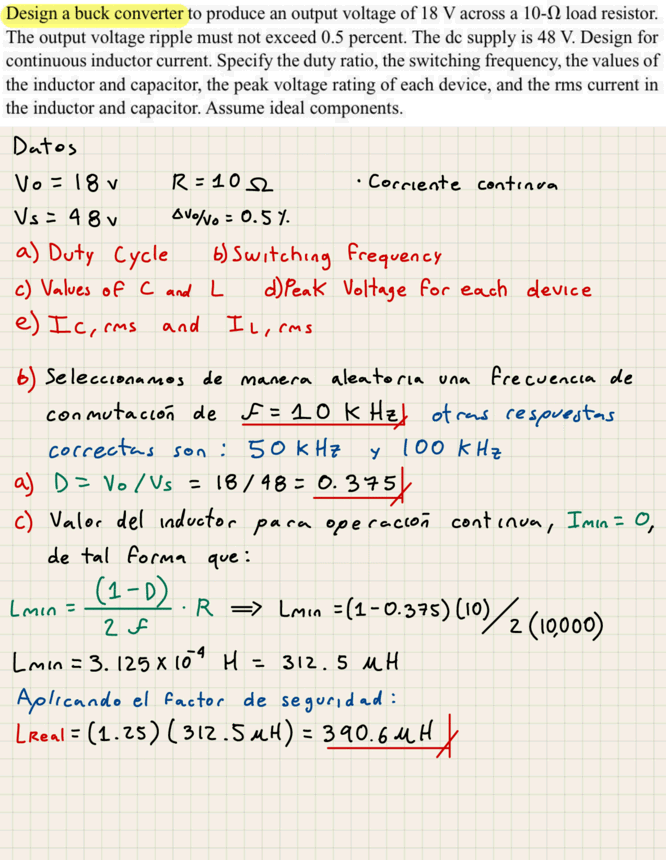 Design a buck converter to produce an output voltage of 18 V across a 10-Ω load resistor.
The output voltage ripple must not exceed 0.5 percent. The dc supply is 48 V. Design for
continuous inductor current. Specify the duty ratio, the switching frequency, the values of
the inductor and capacitor, the peak voltage rating of each device, and the rms current in
the inductor and capacitor. Assume ideal components.
Datos
Vo = 18 v R = 10 Ω · Corriente continua
Vs = 48 v ΔVo/Vo = 0.5 %.
a) Duty Cycle b) Switching Frequency
c) Values of C and L d) Peak Voltage for each device
e) Ic, rms and IL, rms
b) Seleccionamos de manera aleatoria una frecuencia de
conmutación de f = 10 kHz otras respuestas
correctas son : 50 kHz y 100 kHz
a) D = Vo / Vs = 18 / 48 = 0.375
c) Valor del inductor para operación continua, Imin = 0,
de tal forma que :
Lmin = (1-D) / 2 f · R ⟹ Lmin = (1-0.375)(10) / 2 (10,000)
Lmin = 3.125 x 10⁻⁴ H = 312.5 μH
Aplicando el factor de seguridad :
LReal = (1.25) (312.5 μH) = 390.6 μH